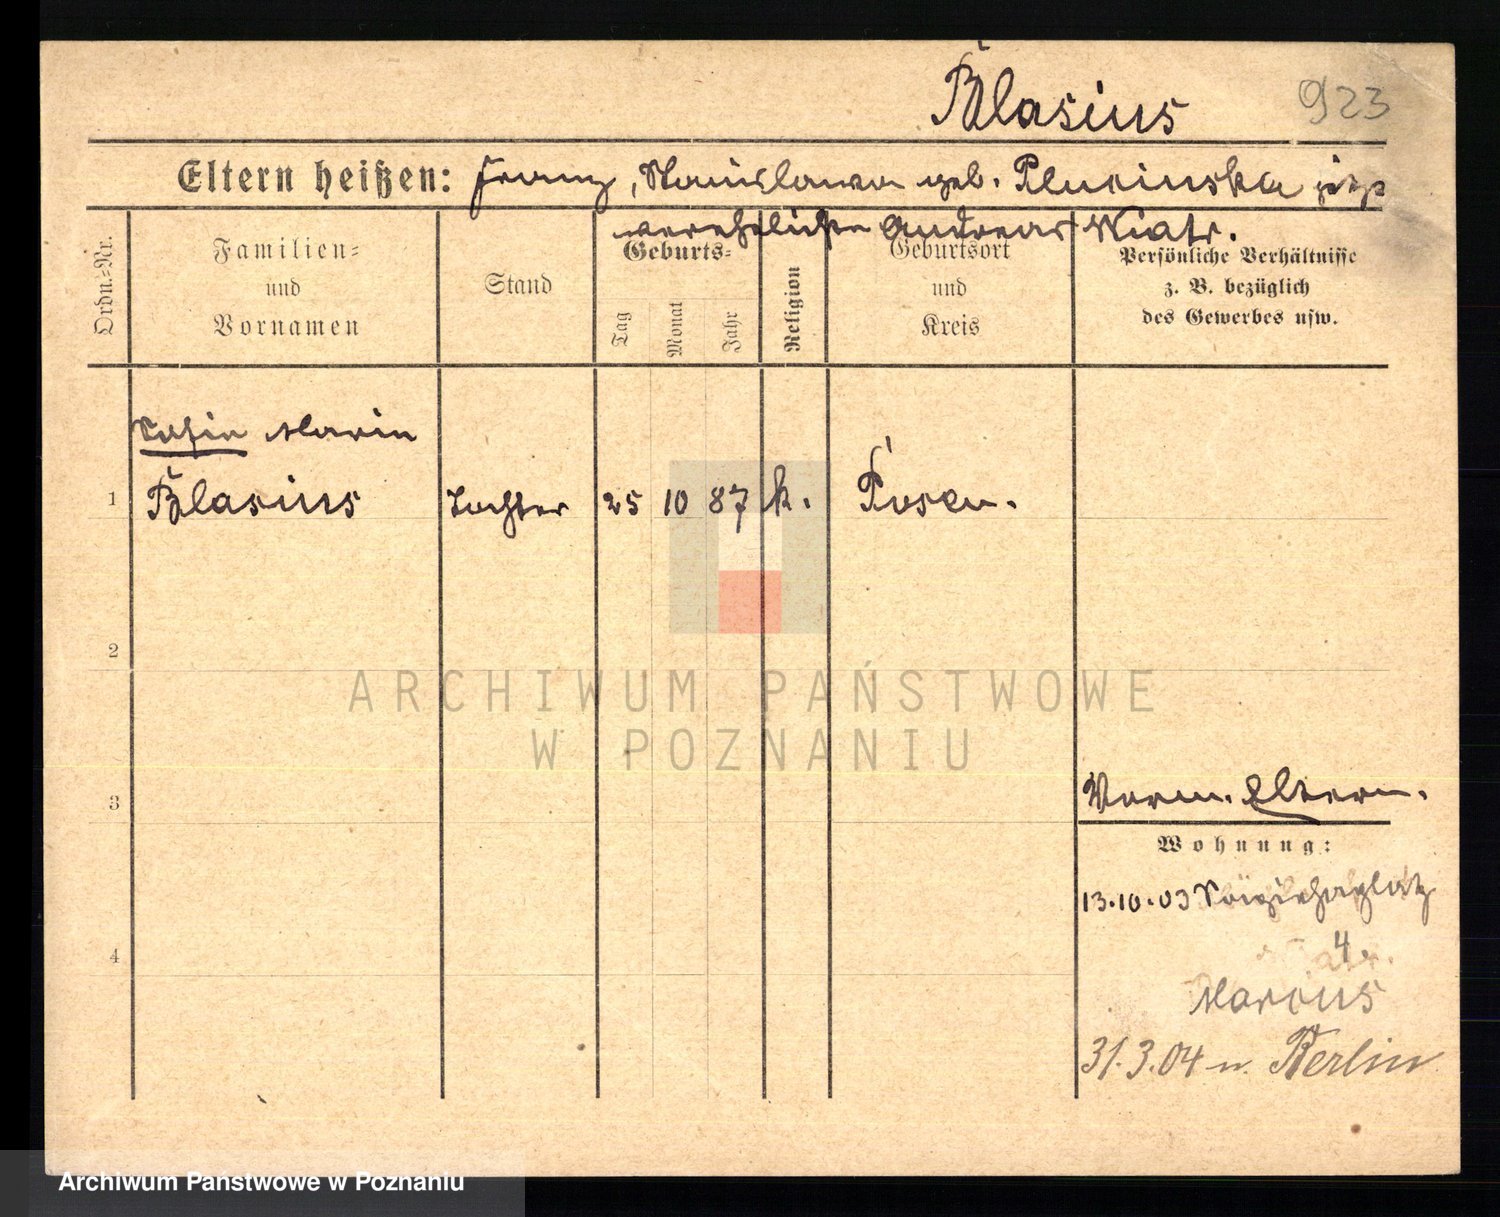 Blasius
923
Eltern heißen: Franz, Stanislawa geb. Plucinska jetzt
verehelichte Andreas Wiatr.
Ordn.-Nr.
Familien-
und
Vornamen
Stand
Geburts-
Tag
Monat
Jahr
Religion
Geburtsort
und
Kreis
Persönliche Verhältnisse
z. B. bezüglich
des Gewerbes usw.
Sofia Maria
1 Blasius Tochter 25 10 87 k. Posen.
2
ARCHIWUM PAŃSTWOWE
W POZNANIU
3
Vorm. Eltern.
Wohnung:
13.10.03
4
4.
Marcus
31.3.04 n. Berlin
Archiwum Państwowe w Poznaniu